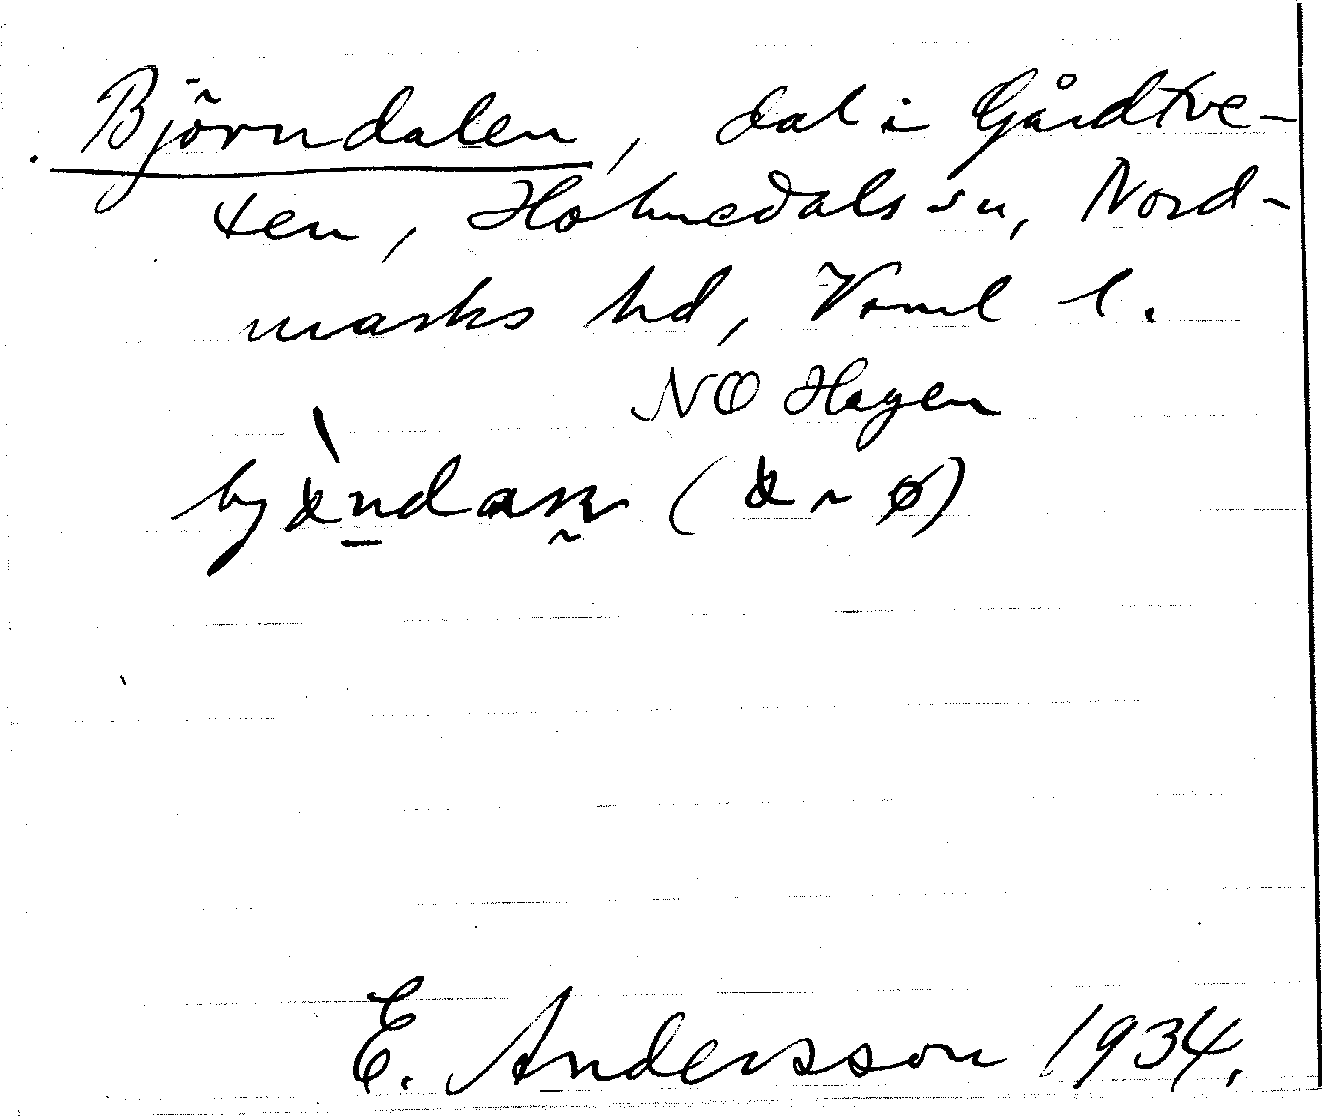 Björndalen, dal i Gårdtve-
ten, Holmedals sn, Nord-
marks hd, Vrml l.
NO Hagen
E. Andersson 1934.